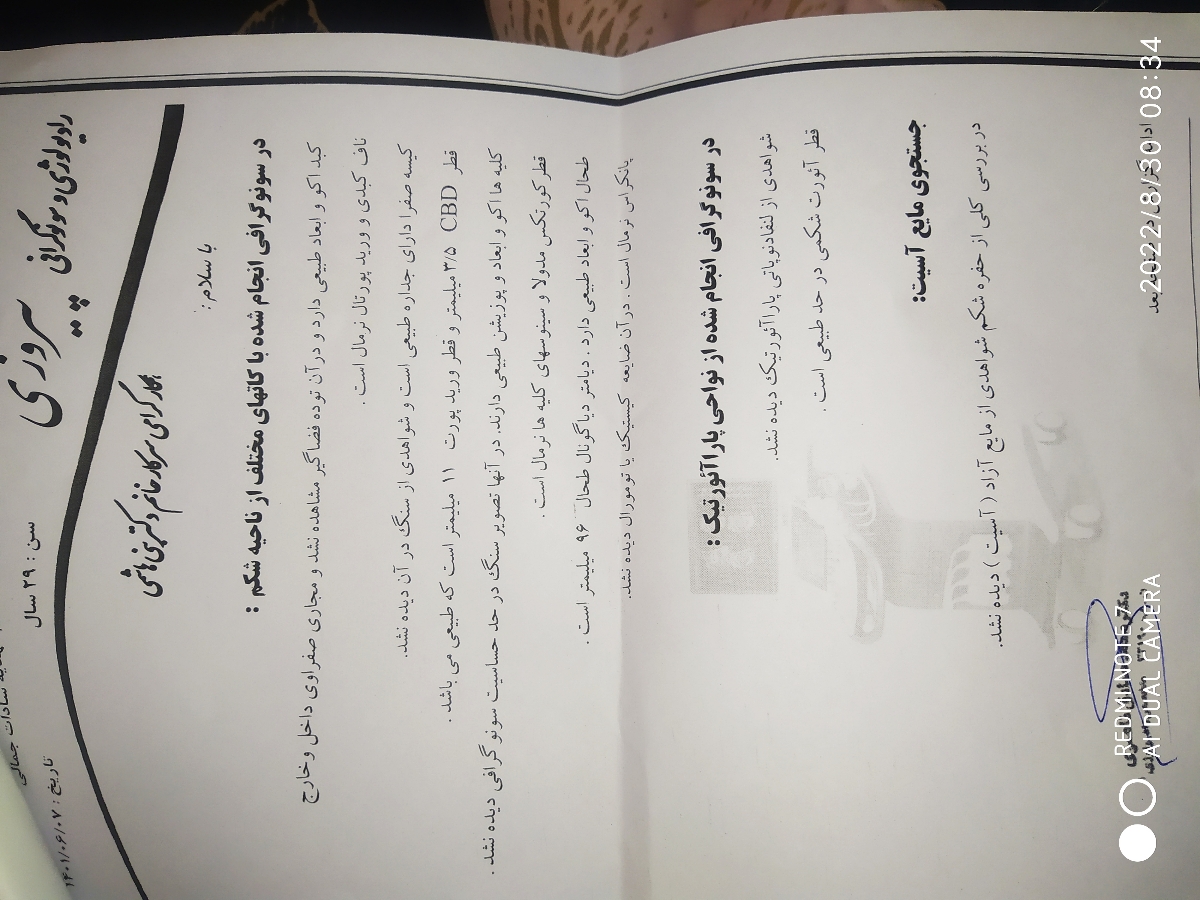 رادیولوژی و سونوگرافی
پیروزی
سادات جمالی
سن : ۲۹ سال
تاریخ : ۱۴۰۱/۰۶/۰۷
همکار گرامی سرکار خانم دکتر
با سلام :
در سونوگرافی انجام شده با کاتهای مختلف از ناحیه شکم :
کبد اکو و ابعاد طبیعی دارد و در آن توده فضاگیر مشاهده نشد و مجاری صفراوی داخل و خارج
ناف کبدی و ورید پورتال نرمال است .
کیسه صفرا دارای جداره طبیعی است و شواهدی از سنگ در آن دیده نشد.
قطر CBD ۳/۵ میلیمتر و قطر ورید پورت ۱۱ میلیمتر است که طبیعی می باشد .
کلیه ها اکو و ابعاد و پوزیشن طبیعی دارند. در آنها تصویر سنگ در حد حساسیت سونوگرافی دیده نشد.
قطر کورتکس مدولا و سینوسهای کلیه ها نرمال است .
طحال اکو و ابعاد طبیعی دارد . دیامتر دیاگونال طحال ۹۶ میلیمتر است .
پانکراس نرمال است . در آن ضایعه کیستیک یا تومورال دیده نشد.
در سونوگرافی انجام شده از نواحی پاراآئورتیک :
شواهدی از لنفادنوپاتی پاراآئورتیک دیده نشد.
قطر آئورت شکمی در حد طبیعی است .
جستجوی مایع آسیت:
در بررسی کلی از حفره شکم شواهدی از مایع آزاد ( آسیت ) دیده نشد.
بعد
2022/8/30 08:34
REDMI NOTE 7
AI DUAL CAMERA